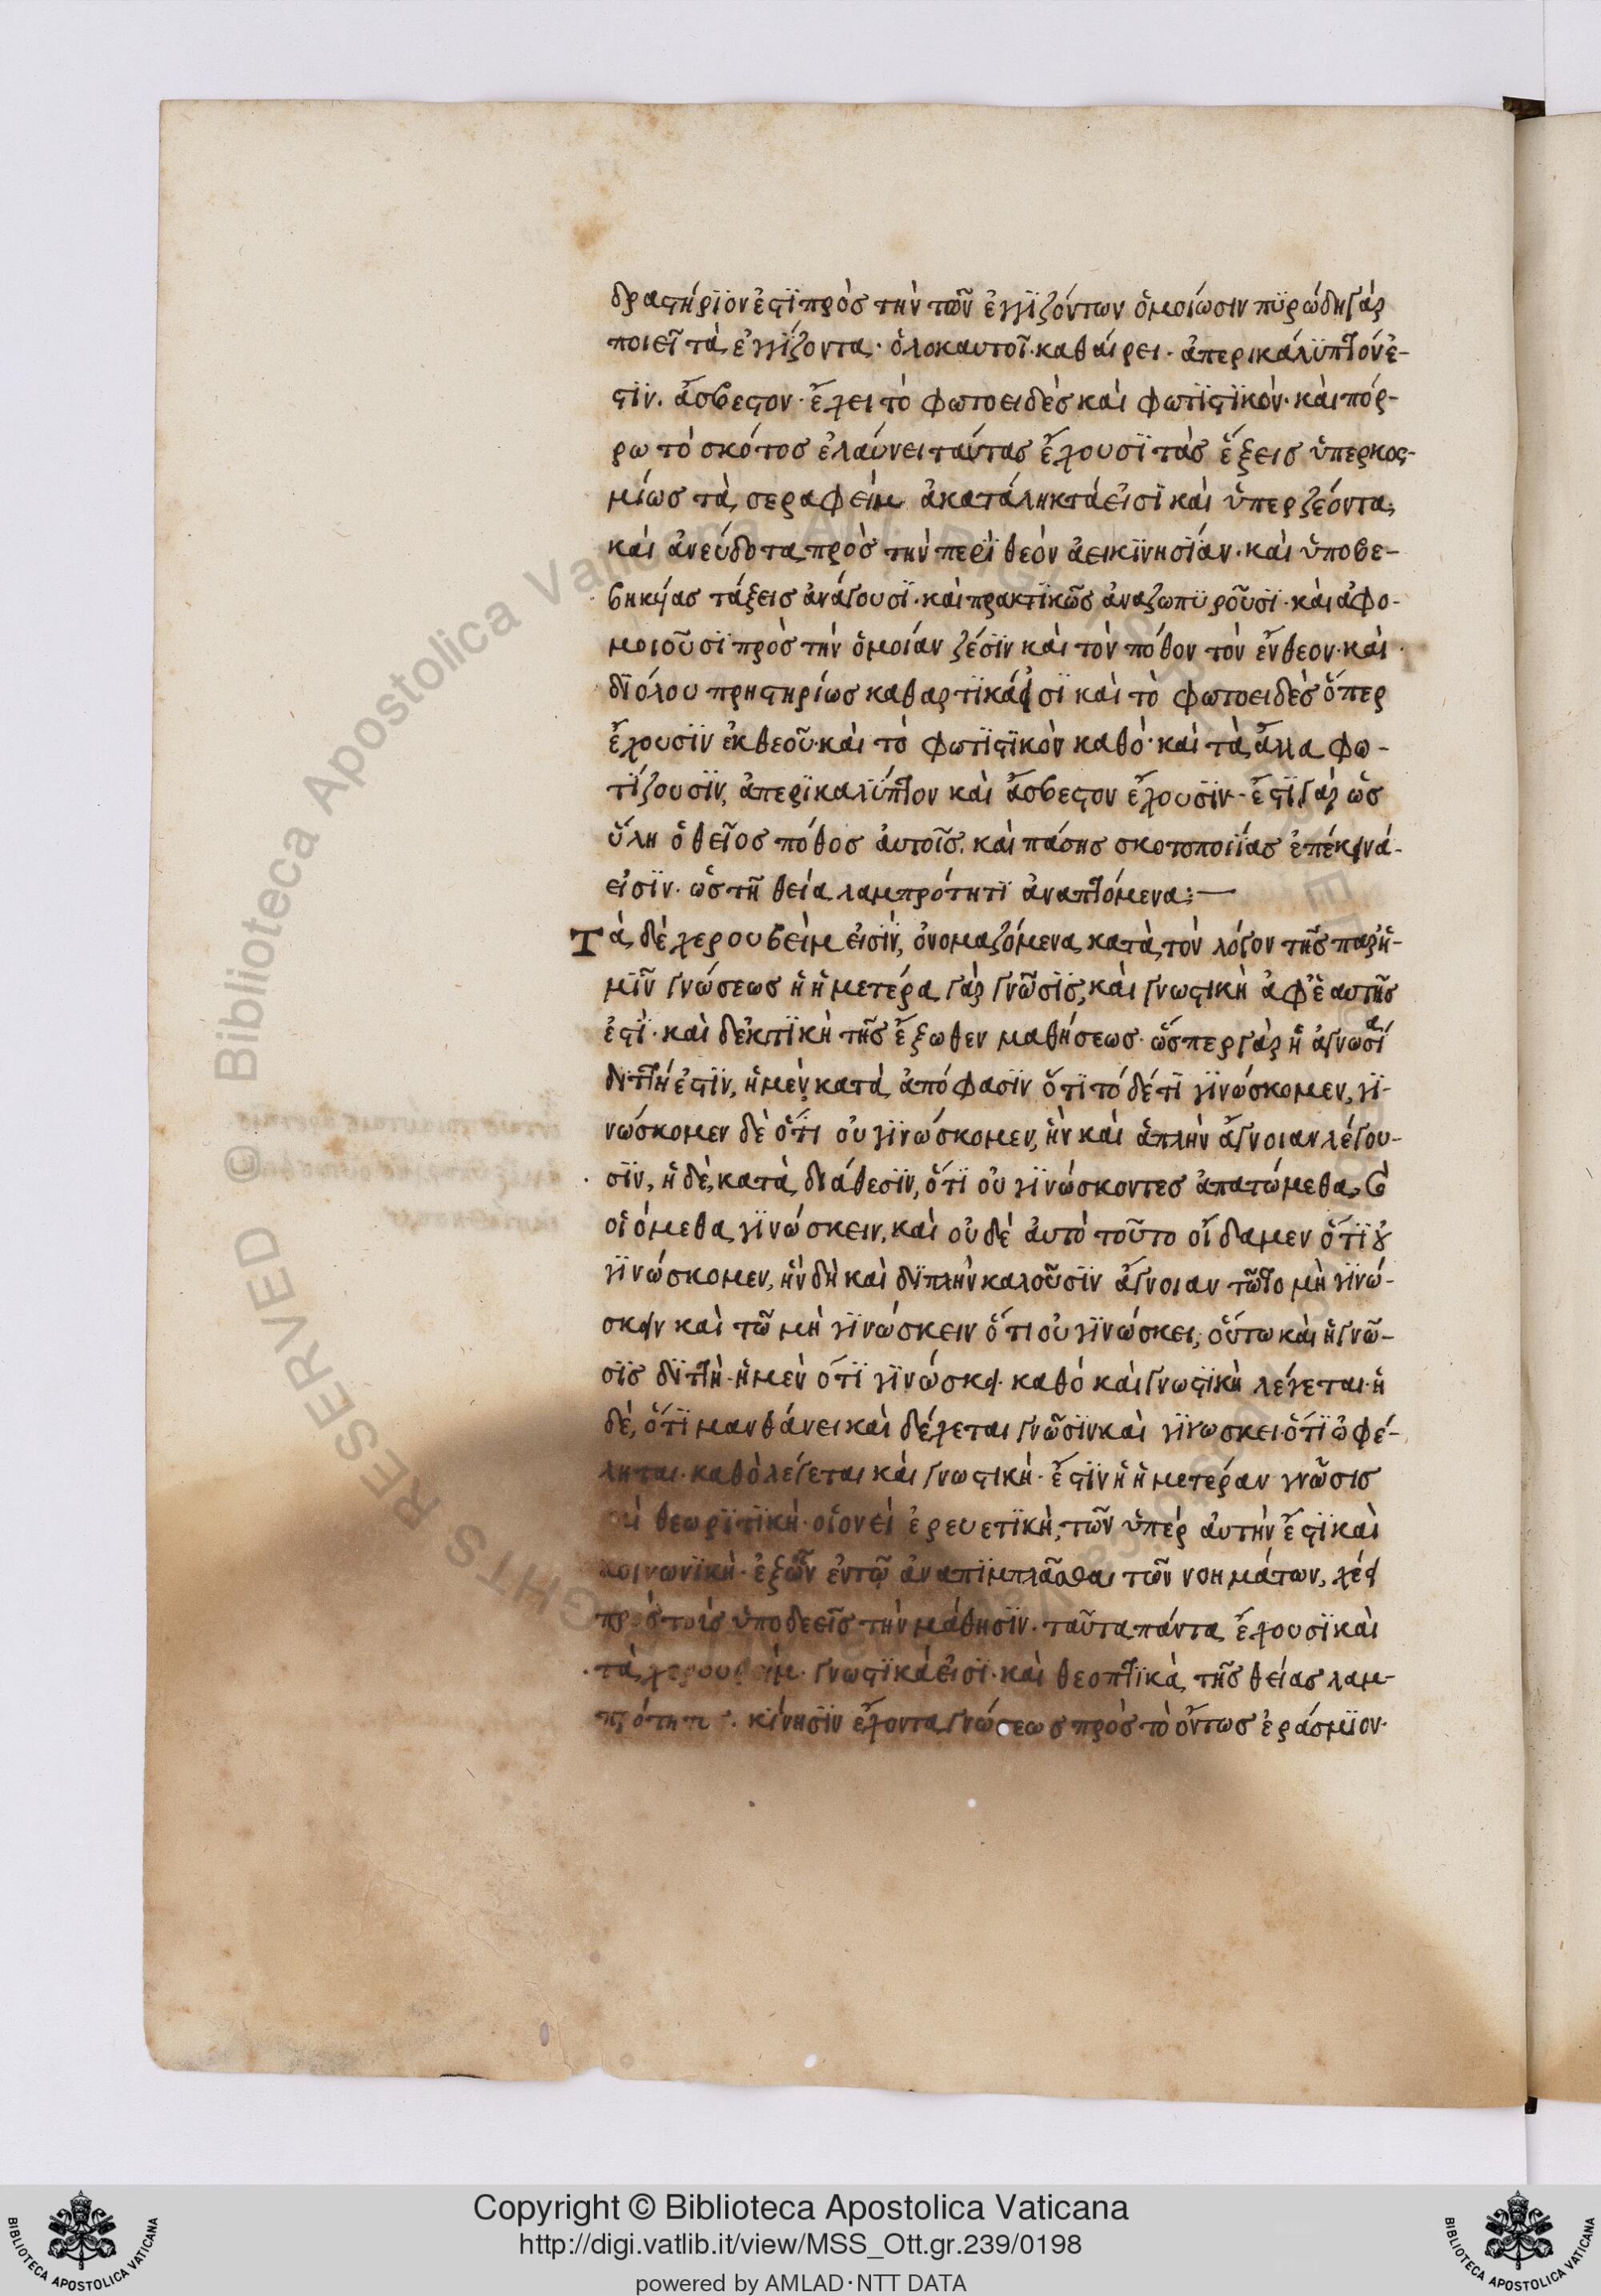 δραστήριον ἐστὶ πρὸς τὴν τῶν ἐγγιζόντων ὁμοίωσιν πυρώδη γάρ
ποιεῖ τὰ ἐγγίζοντα· ὁλοκαυτοῖ· καθαίρει· ἀπερικάλυπτόν ἐ-
στιν. ἄσβεστον· ἔχει τὸ φωτοειδὲς καὶ φωτιστικόν· καὶ πόρ-
ρω τὸ σκότος ἐλαύνει ταύτας ἔχουσι τὰς ἕξεις ὑπερκοσ-
μίως τὰ σεραφείμ ἀκατάληκτά εἰσι καὶ ὑπερζέοντα,
καὶ ἀνεύδοτα πρὸς τὴν περὶ θεὸν ἀεικινησίαν· καὶ ὑποβε-
βηκυίας τάξεις ἀνάγουσι· καὶ πρακτικῶς ἀναζωπυροῦσι· καὶ ἀφο-
μοιοῦσι πρὸς τὴν ὁμοίαν ζέσιν καὶ τὸν πόθον τὸν ἔνθεον· καὶ
διόλου πρηστηρίως καθαρτικά εἰσι καὶ τὸ φωτοειδὲς ὅπερ
ἔχουσιν ἐκ θεοῦ· καὶ τὸ φωτιστικὸν καθό· καὶ τὰ ἄλλα φω-
τίζουσιν, ἀπερικαλύπτον καὶ ἄσβεστον ἔχουσιν· ἔστι γάρ ὡς
ὕλη ὁ θεῖος πόθος αὐτοῖς. καὶ πάσης σκοτοποιίας ἐπέκεινά-
εἰσιν. ὡς τῆ θεία λαμπρότητι ἀναπτόμενα:—
Τὰ δὲ χερουβείμ εἰσίν, ὀνομαζόμενα κατὰ τὸν λόγον τῆς παρ' ἡ-
μῖν γνώσεως ἡ ἡμετέρα γάρ γνῶσις, καὶ γνωστικὴ ἀφ' ἑαυτῆς
ἐστί· καὶ δεκτικὴ τῆς ἔξωθεν μαθήσεως· ὥσπερ γάρ ἡ ἀγνωσία
διττή ἐστιν, ἡ μὲν κατὰ ἀπόφασιν ὅτι τό δέ τι γινώσκομεν, γι-
νώσκομεν δὲ ὅτι οὐ γινώσκομεν, ἣν καὶ ἁπλὴν ἄγνοιαν λέγου-
σιν, ἡ δὲ, κατὰ διάθεσιν, ὅτι οὐ γινώσκοντες ἀπατώμεθα, καὶ
οἰόμεθα γινώσκειν, καὶ οὐδὲ αὐτὸ τοῦτο οἴδαμεν ὅτι οὐ
γινώσκομεν, ἣν δὴ καὶ διπλὴν καλοῦσιν ἄγνοιαν τῶ τὸ μὴ γινώ-
σκειν καὶ τῶ μὴ γινώσκειν ὅτι οὐ γινώσκει, οὕτω καὶ ἡ γνῶ-
σις διττὴ· ἡ μὲν ὅτι γινώσκει· καθό καὶ γνωστικὴ λέγεται· ἡ
δὲ, ὅτι μανθάνει καὶ δέχεται γνῶσιν καὶ γινωσκει· ὅτι ὠφέ-
ληται· καθὸ λέγεται καὶ γνωστική· ἔστιν ἡ ἡμετέραν γνῶσις
θεωριτικὴ· οἱονεὶ ἐρευετικὴ, τῶν ὑπὲρ αὐτὴν ἔστι καὶ
κοινωνικὴ· ἐξῶν ἐν τῶ ἀναπίμπλασθαι τῶν νοημάτων, χέει
πρὸς τοὺς ὑποδεεῖς τὴν μάθησιν. ταῦτα πάντα ἔχουσι καὶ
τὰ χερουβείμ· γνωστικά εἰσι· καὶ θεοπτικὰ τῆς θείας λαμ-
πρότητος. κίνησιν ἔχοντα γνώσεως πρὸς τὸ ὄντως ἐράσμιον·
Copyright © Biblioteca Apostolica Vaticana
http://digi.vatlib.it/view/MSS_Ott.gr.239/0198
powered by AMLAD·NTT DATA